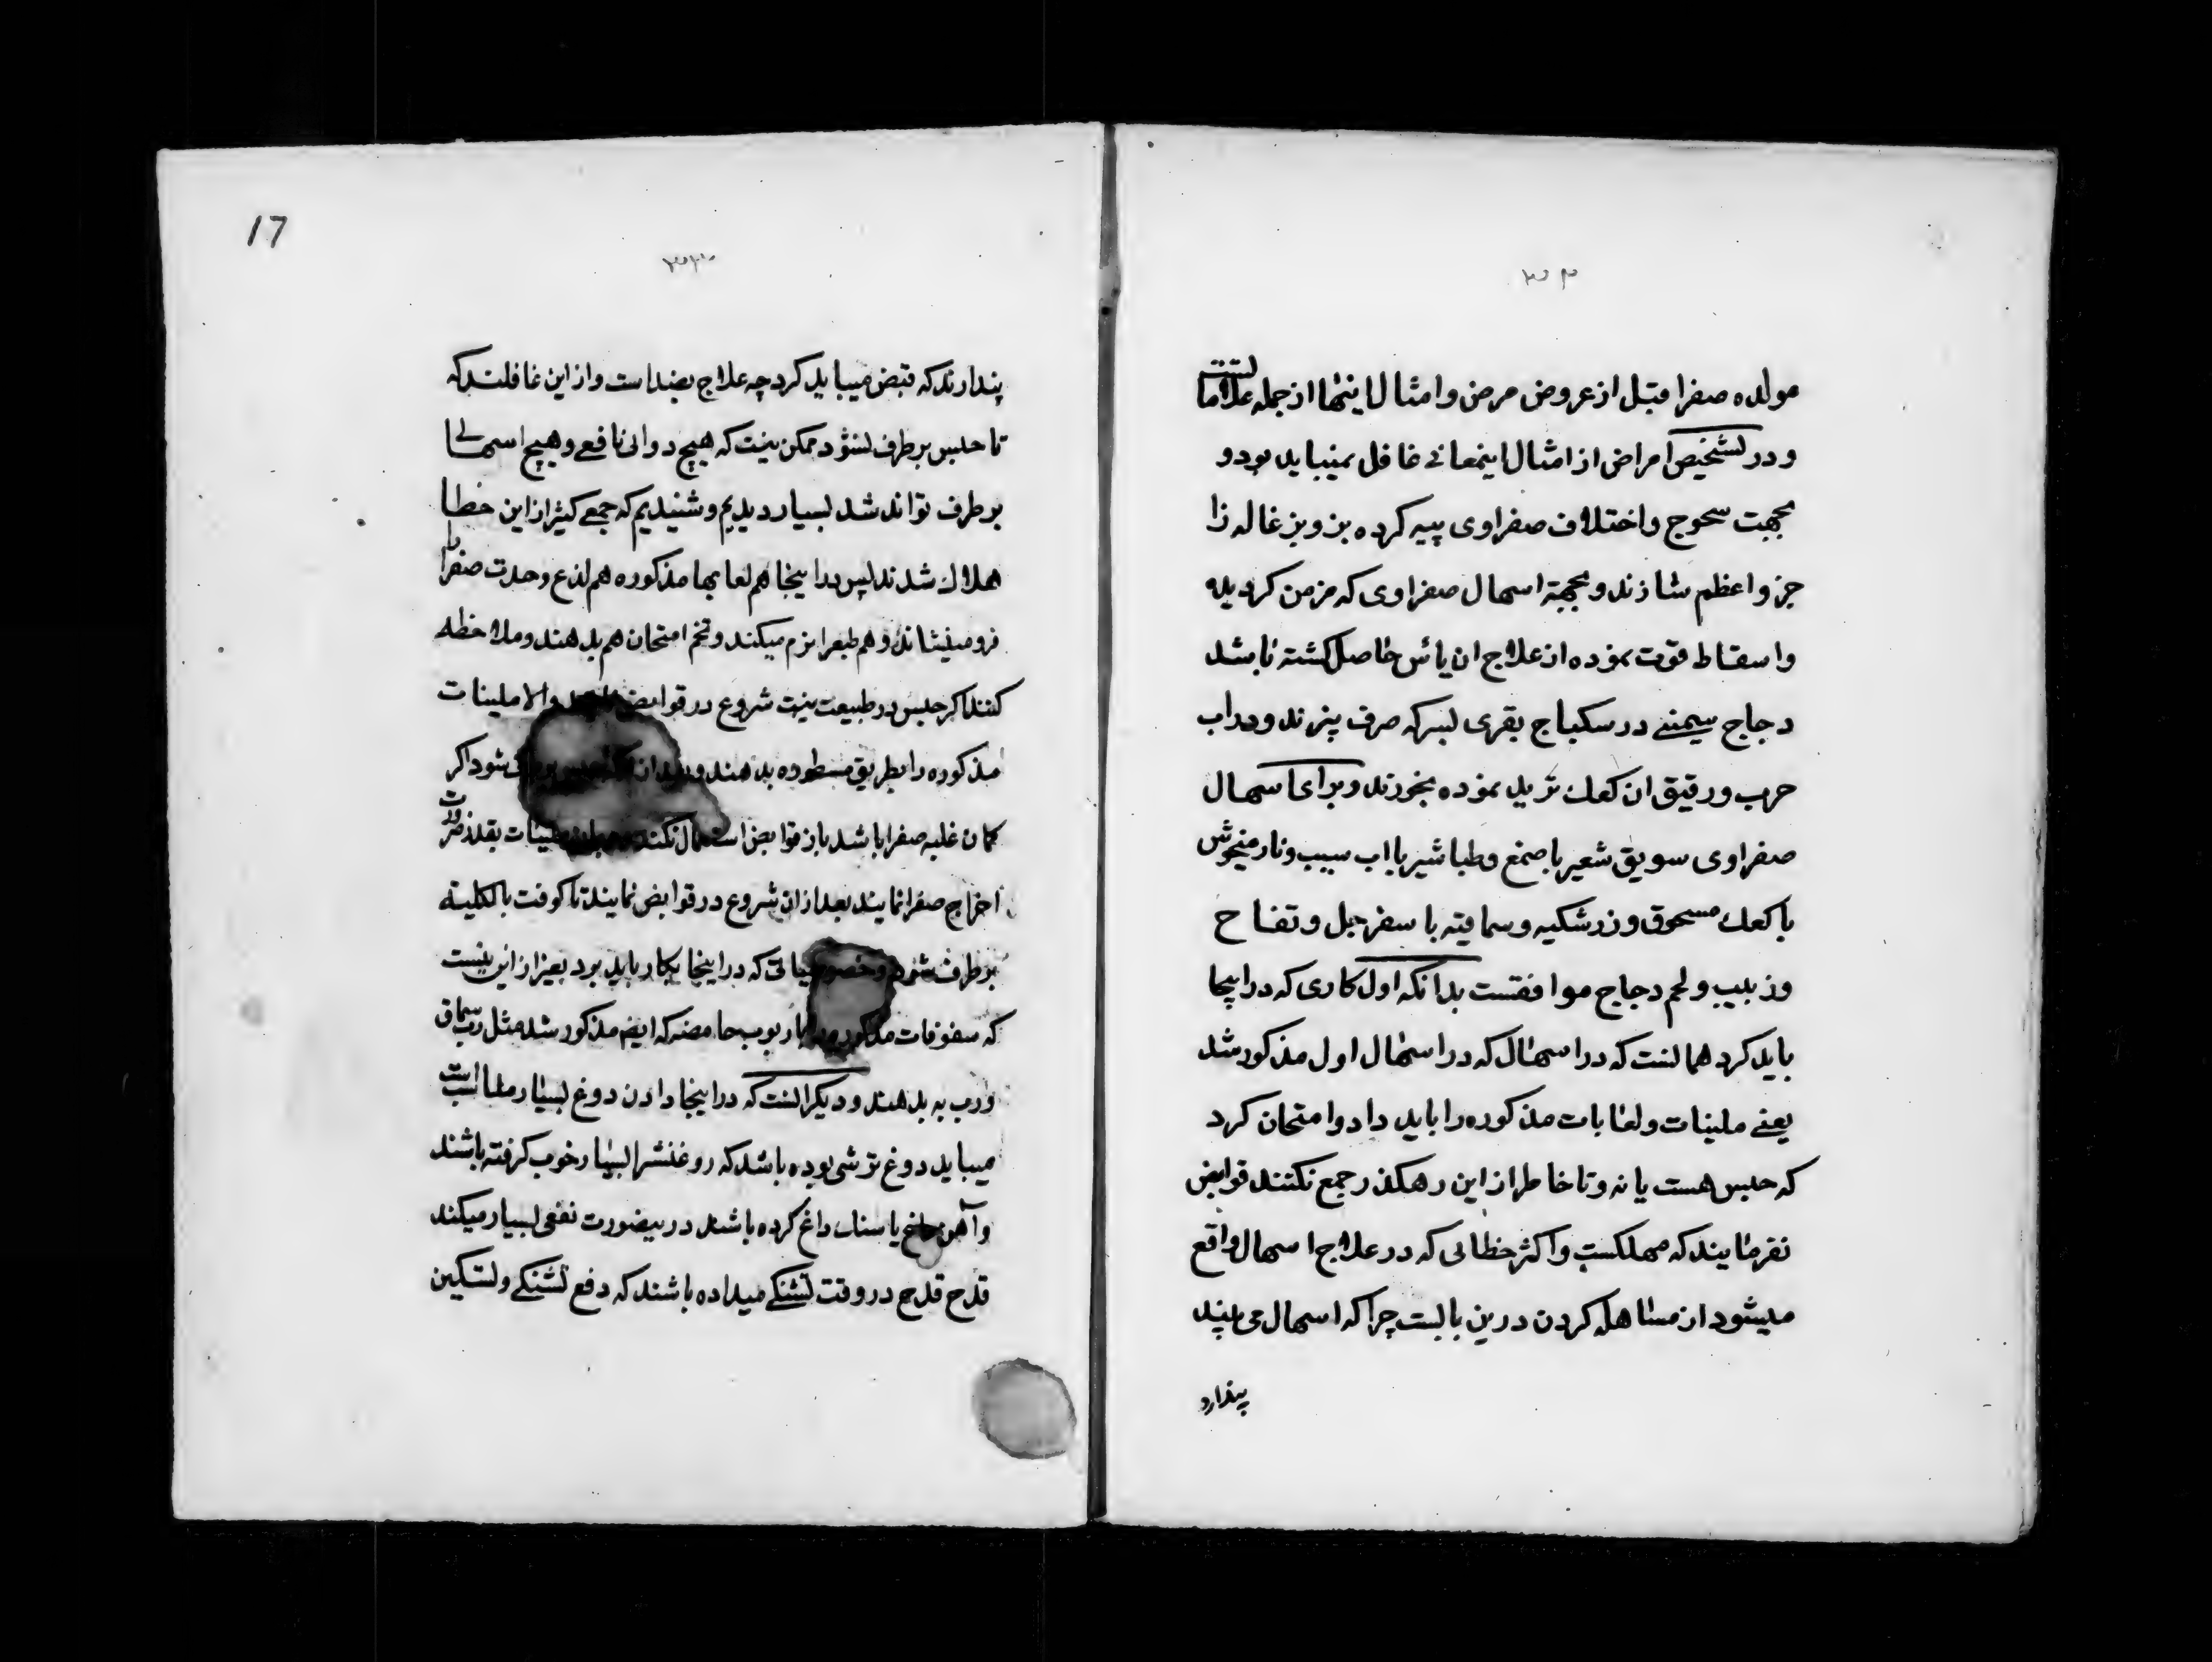 ۳۴
مولده صفرا قبل از عروض مرض و امثال اینها از جمله علاماتست
و در تشخیص امراض از امثال اینمعانی غافل نمیباید بود و
بجهت سحوج و اختلاف صفراوی پیه کرده بز و بزغاله را
جزو اعظم سازند و بجهة اسهال صفراوی که مزمن کردیده
و اسقاط قوت نموده از علاج ان یأس حاصل کشته باشد
دجاج سیمنی در سکباج بقری بسرکه صرف پزند و در اب
چرب و رقیق ان کعک ترید نموده بخورند و برای اسهال
صفراوی سویق شعیر با صمغ و طباشیر با اب سیب و نار میخوش
با کعک مسحوق و زرشکیه و سماقیه با سفرجل و تفاح
و زبیب و لحم دجاج موافقست بدانکه اول کاری که در اینجا
باید کرد همانست که در اسهال که در اسهال اول مذکور شد
یعنی ملینات و لعابات مذکوره را باید داد و امتحان کرد
که حبس هست یا نه و تا خاطر از این رهکذر جمع نکنند قوابض
نفرمایند که مهلکست و اکثر خطائی که در علاج اسهال واقع
میشود از مساهله کردن درین بابست چرا که اسهال می بینند
پندارد
17
۳۳
پندارند که قبض میباید کرد چه علاج بضد است و از این غافلند که
تا حبس برطرف نشود ممکن نیست که هیچ دوائی نافع و هیچ اسهالی
برطرف تواند شد بسیار دیدیم و شنیدیم که جمعی کثیر از این خطا
هلاک شدند پس در اینجا هم لعابها مذکوره هم لذع وحدت صفرا را
فرو مینشاند و هم طبع را نرم میکند و تخم امتحان هم بدهند و ملاحظه
کنند اکر حبس در طبیعت نیست شروع در قوابض والا ملینات
مذکوره را بطریق مسطوره بدهند و بعد از شود اکر
کمان غلبه صفرا باشد باز قوابض استعمال نکنند ملینات بقدر ضرورت
اخراج صفرا نمایند بعد از ان شروع در قوابض نمایند تا کوفت بالکلیه
برطرف شود و خصوصیاتی که در اینجا بکار باید برد بغیر از این نیست
که سفوفات مذکوره با ربوب حامضه که ایضا مذکور شد مثل رب سماق
و رب به بدهند و دیکر انست که در اینجا دادن دوغ بسیار مناسبست
میباید دوغ ترشی بوده باشد که روغنشرا بسیار خوب کرفته باشند
و آهن یا سنک داغ کرده باشند در ینصورت نفعی بسیار میکند
قدح قدح در وقت تشنکی میداده باشند که دفع تشنکی و تسکین